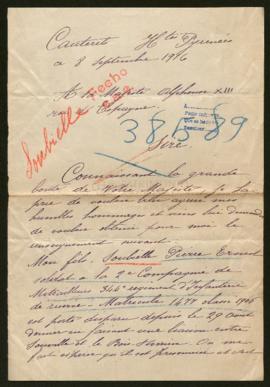 Cauterets Htes Pyrénées
le 8 septembre 1916
A Sa Majesté Alphonse XIII
roi d'Espagne
Hecho
Soubielle
38589
Sire.
Connaissant la grande
bonté de Votre Majesté, je la
prie de vouloir bien agréer mes
humbles hommages et vous de
de vouloir obtenir pour moi le
renseignement suivant
Mon fils, Soubielle Pierre Ernest
soldat à la 2e Compagnie de
Mitrailleurs 344e régiment d'Infanterie
de réserve - Matricule 1478 classe 1906
est porté disparu depuis le 29 Août
dernier en faisant une liaison entre
Souville et le Bois. On me
fait espérer qu'il est prisonnier et c'est